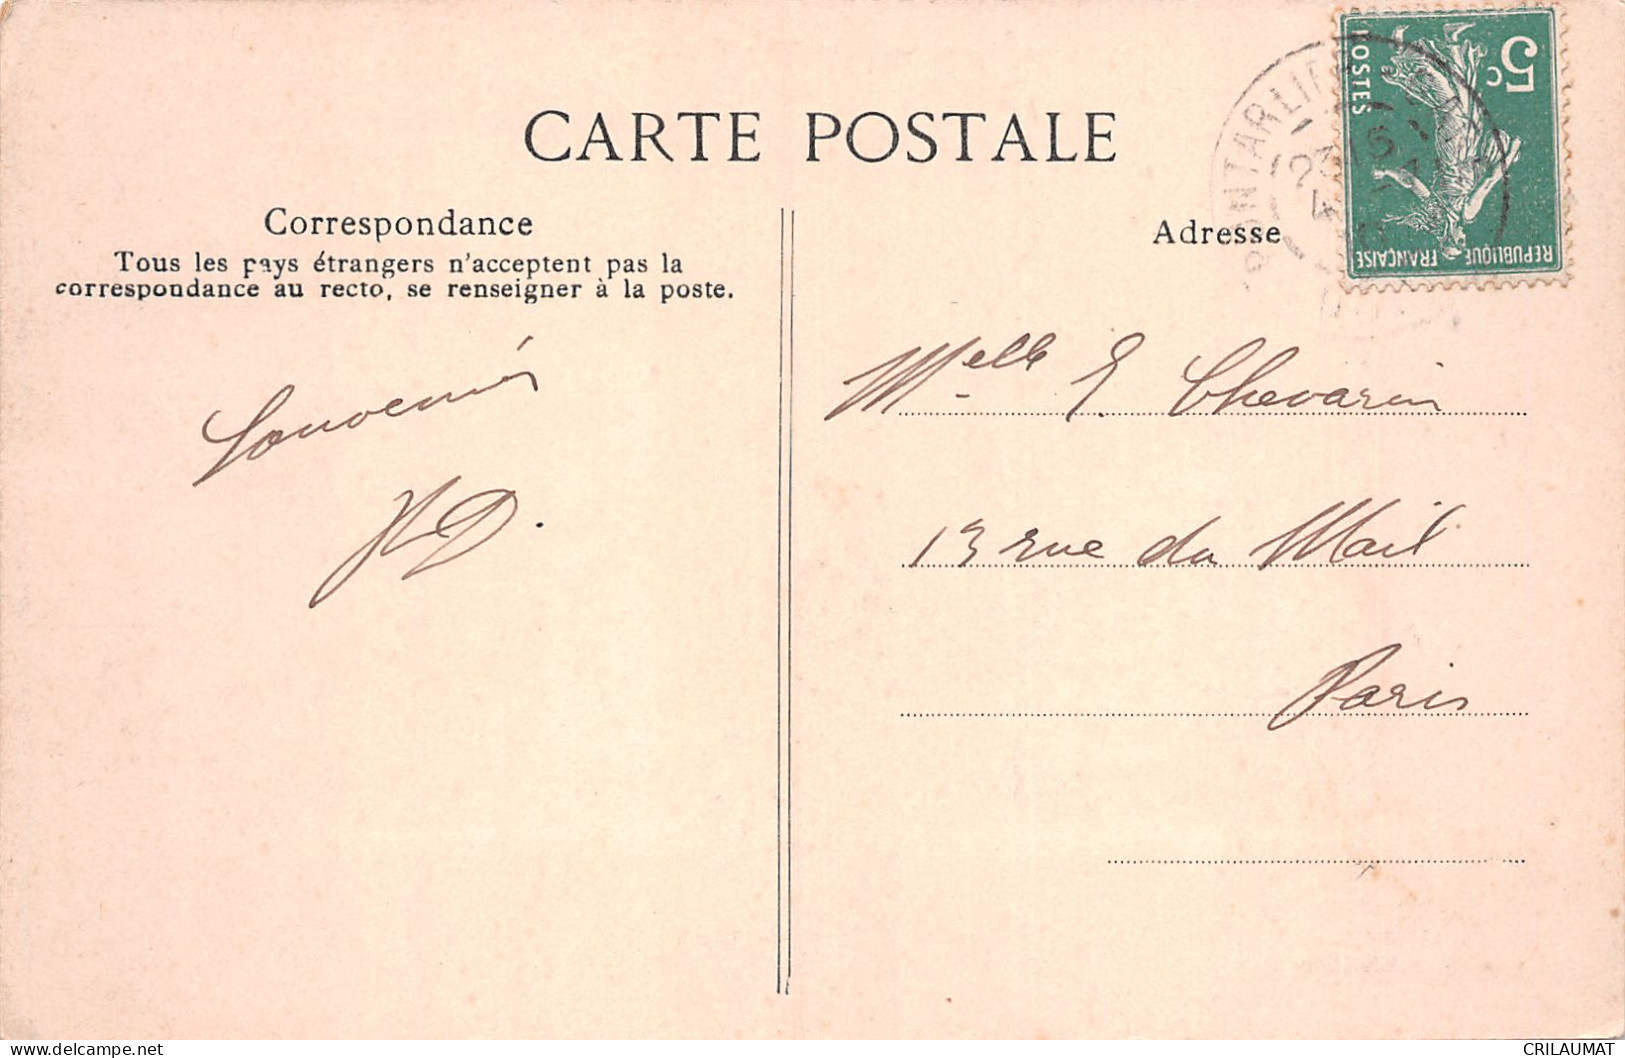 CARTE POSTALE
Correspondance
Tous les pays étrangers n'acceptent pas la
correspondance au recto, se renseigner à la poste.
Souvenir
HD.
Adresse
PONTARLIER
5c
POSTES
REPUBLIQUE FRANÇAISE
Melle E. Chevarin
13 rue du Mail
Paris
CRILAUMAT